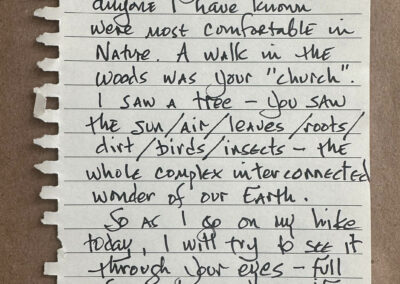 anyone I have known
were most comfortable in
Nature. A walk in the
woods was your "church".
I saw a tree – you saw
the sun/air/leaves/roots/
dirt/birds/insects – the
whole complex interconnected
wonder of our Earth.
So as I go on my hike
today, I will try to see it
through your eyes – full